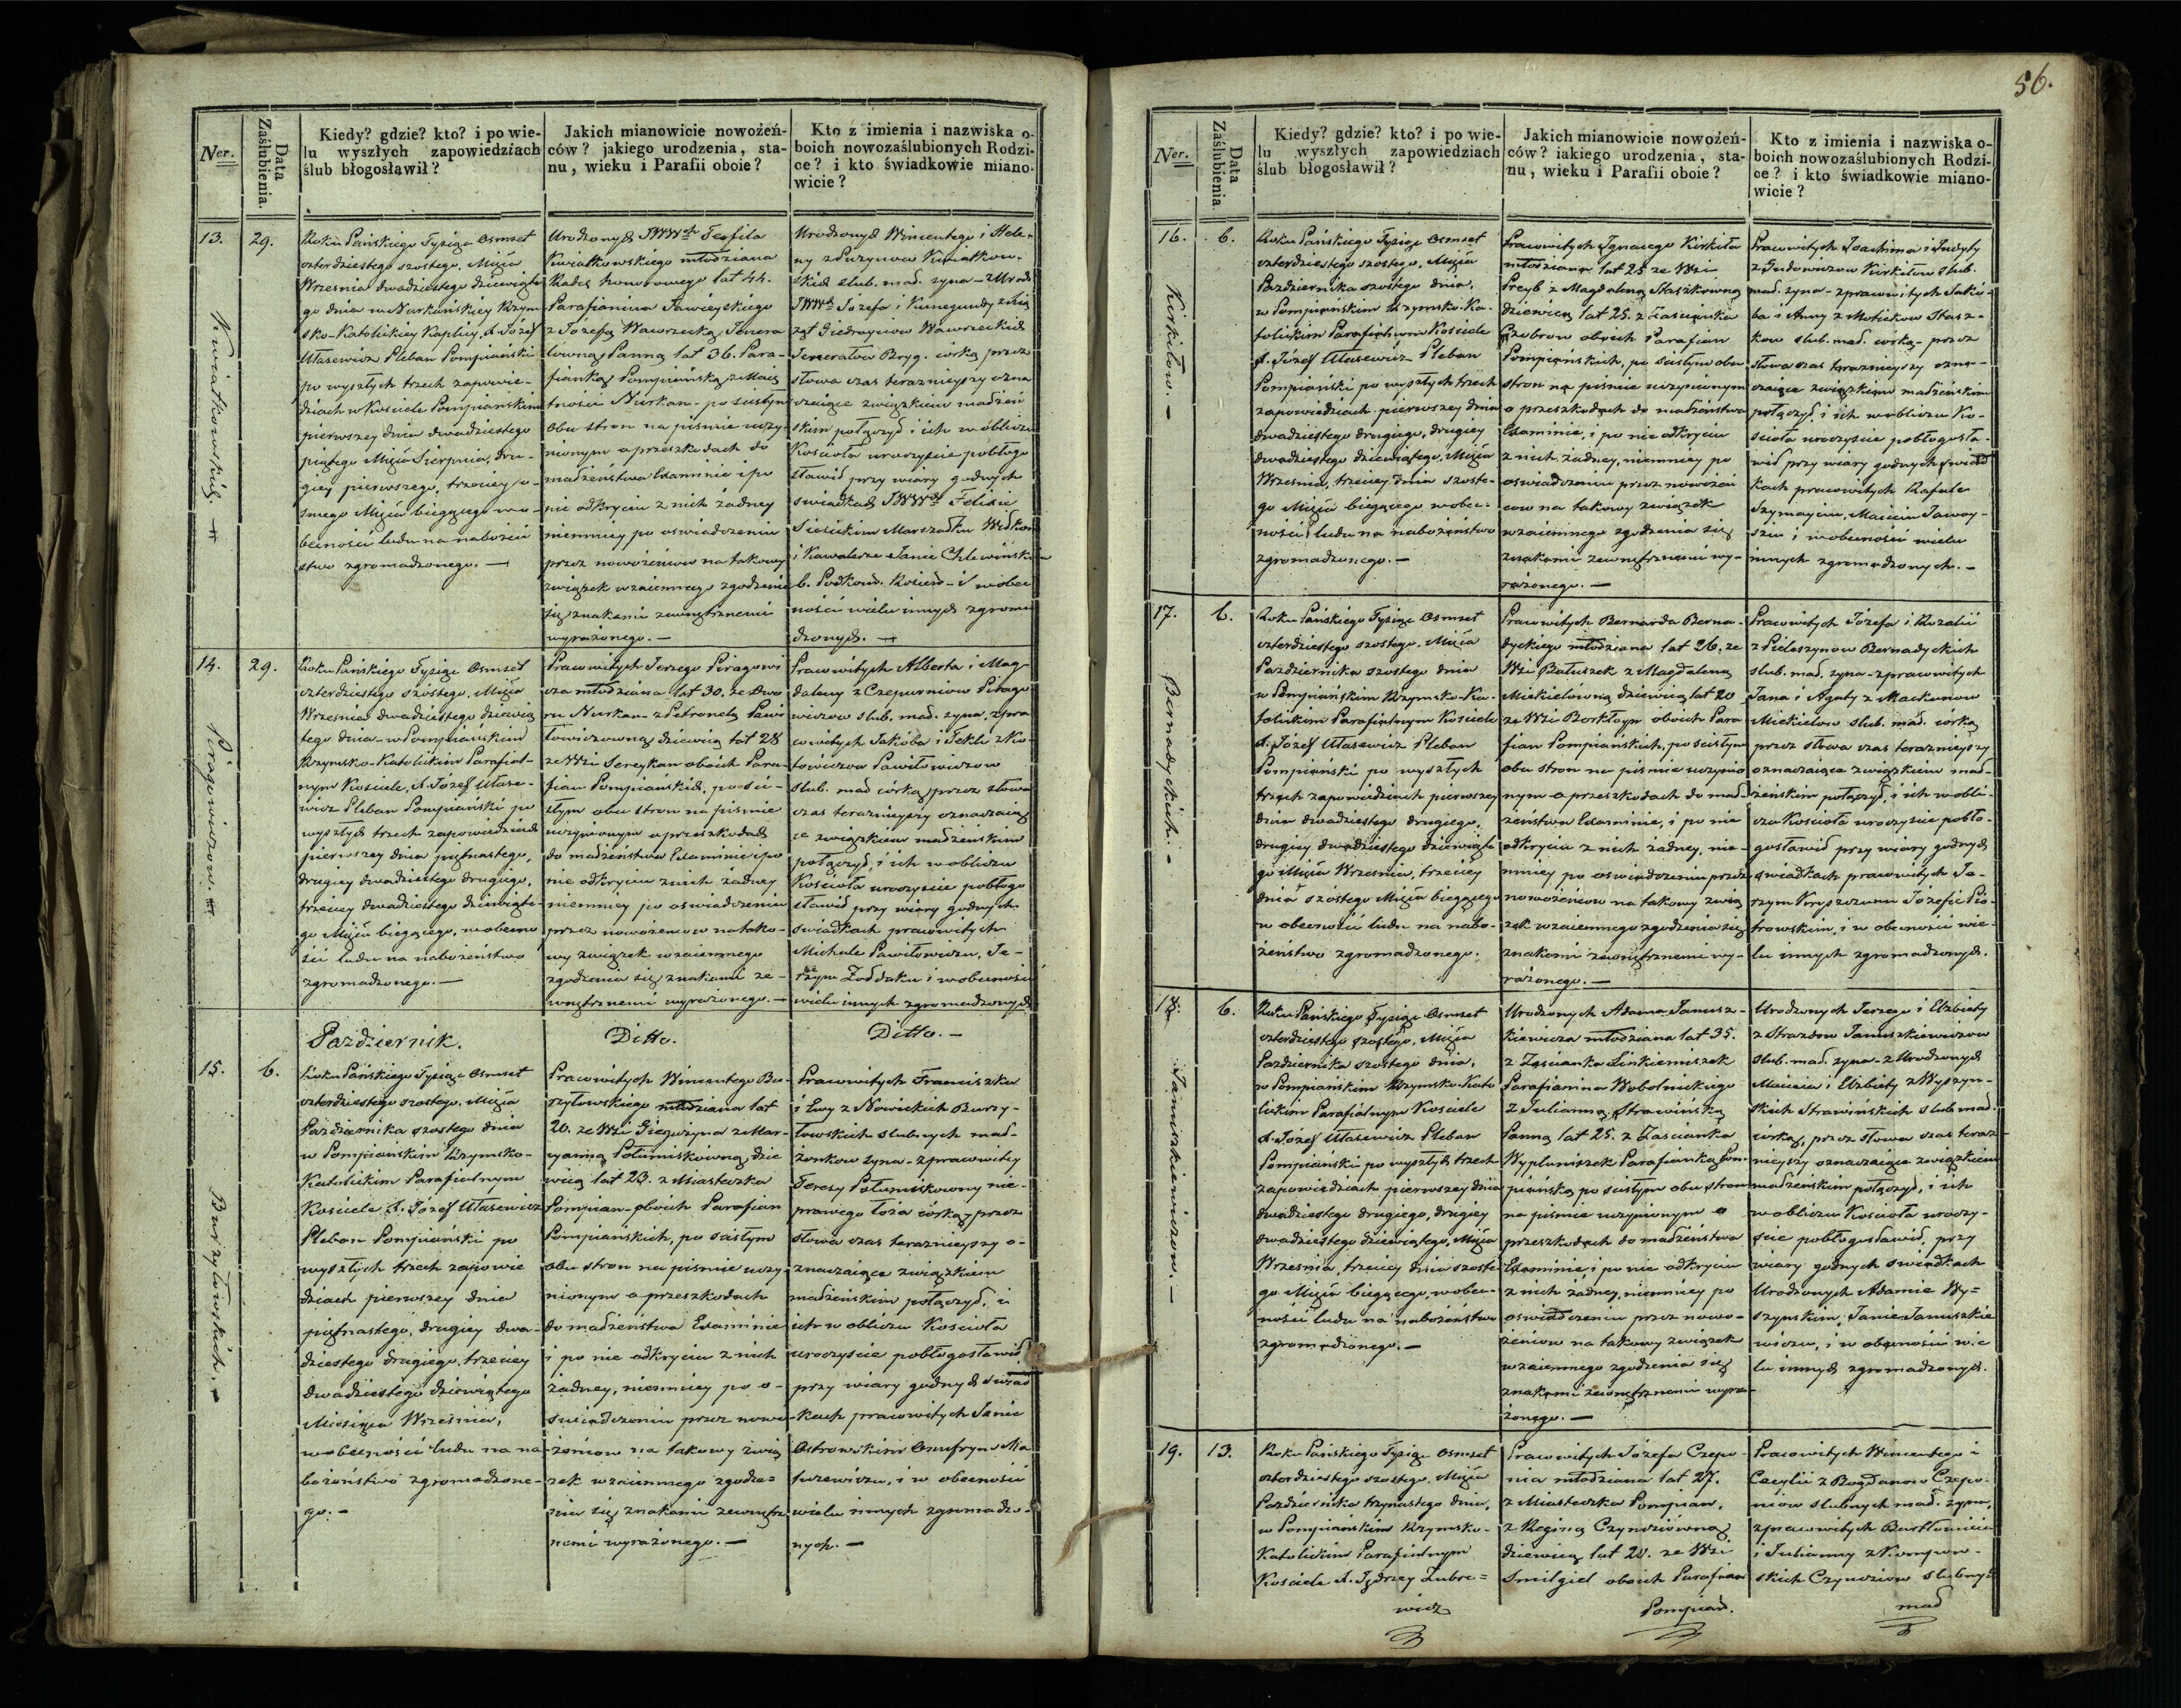 56.
Ner.
Data
Zaślubienia.
Kiedy? gdzie? kto? i po wie-
lu wyszłych zapowiedziach
ślub błogosławił?
Jakich mianowicie nowożeń-
ców? jakiego urodzenia, sta-
nu, wieku i Parafii oboie?
Kto z imienia i nazwiska o-
boich nowozaślubionych Rodzi-
ce? i kto świadkowie miano-
wicie?
13.
Kwiatkowskich.
29.
Roku Pańskiego Tysiąc Osmset
czterdziestego szostego, Msca
Września dwadziestego dziewiąte
go dnia w Nurkańskiey Rzym
sko-Katolickiey Kaplicy, X. Józef
Ułasewicz Pleban Pompiański
po wyszłych trzech zapowie-
dziach w Kościele Pompiańskim
pierwszey dnia dwadziestego
piątego Msca Sierpnia, dru-
giey pierwszego, trzeciey o-
smego Msca biegącego w o-
becności ludu na nabożeń
stwo zgromadzonego. —
Urodzonych JWWch Teofila
Kwiatkowskiego młodziana
Radcę honorowego lat 44.
z Józefą Wawrzecką Jenera
łowną Panną lat 36. Para-
fianką Pompiańską z Mają
tności Nurkan - po scisłym
obu stron na pismie uczy-
nionym o przeszkodach do
małżeństwa Examinie i po
nie odkryciu z nich żadney
niemniey po oswiadczeniu
przez nowożeńców na takowy
związek wzaiemnego zgodzenia
się znakami zewnętrznemi
wyrażonego. —
Urodzonych Wincentego i Hele-
ny Kwiatkow-
skich slub. mał. syna - z Urodz
JWWch Józefa i Kunegundy z Xią
żąt Giedroyciow Wawrzeckich
Jenerałow Bryg. córką przez
słowa czas teraznieyszy ozna
czaiące związkiem małżeń
skim połączył i ich w obliczu
Kościoła uroczyscie pobłogo
sławił przy wiary godnych
swiadkach JWWch Felixie
Marszałku
i Kawalerze Janie Chlewińskim
b. Podkom. - i w obec
ności wielu innych zgroma
dzonych. —
14.
Piragowiczow.
29.
Roku Pańskiego Tysiąc Osmset
czterdziestego szóstego, Msca
Września dwadziestego dziewią
tego dnia - w Pompiańskim
Rzymsko-Katolickim Parafial-
nym Kościele, X. Józef Ułase-
wicz Pleban Pompiański po
wyszłych trzech zapowiedziach
pierwszey dnia piętnastego,
drugiey dwadziestego drugiego,
trzeciey dwadziestego dziewiąte-
go Msca biegącego, w obecno
ści ludu na nabożeństwo
zgromadzonego. —
Pracowitych Jerzego Piragowi
cza młodziana lat 30. ze Dwo
ru Nurkan - z Petronelą Pawi
łowiczowną dziewicą lat 28
ze Wsi Sereykan oboich Para-
fian Pompiańskich, po sci-
słym obu stron na pismie
uczynionym o przeszkodach
do małżeństwa Examinie i po
nie odkryciu z nich żadney
niemniey po oswiadczeniu
przez nowożeńcow na tako-
wy związek wzaiemnego
zgodzenia się znakami ze-
wnętrznemi wyrażonego. —
Pracowitych Alberta i Mag-
daleny z Czepurniow Pirago
wiczow slub. mał. syna, z pra
cowitych Jakóba i Tekli
Pawiłowiczow
slub. mał córką przez słowa
czas teraznieyszy oznaczaią
ce związkiem małżeńskim
połączył, i ich w obliczu
Kościoła uroczyscie pobłogo
sławił przy wiary godnych
swiadkach pracowitych
Michale Pawiłowiczu, Je-
rzym Żołdaku i w obecności
wielu innych zgromadzonych
Październik.
Ditto.
Ditto. —
15.
Burzyłowskich. —
6.
Roku Pańskiego Tysiąc Osmset
czterdziestego szostego, Msca
Października szostego dnia
w Pompiańskim Rzymsko-
Katolickim Parafialnym
Kościele X. Józef Ułasewicz
Pleban Pompiański po
wyszłych trzech zapowie
dziach pierwszey dnia
piętnastego, drugiey dwa-
dziestego drugiego, trzeciey
dwadziestego dziewiątego
Miesiąca Września,
w obecności ludu na na
bożeństwo zgromadzone-
go. —
Pracowitych Wincentego Bu-
rzyłowskiego młodziana lat
20. ze Wsi z Mar-
yanną Połumiskowną dzie
wicą lat 23. z Miasteczka
Pompian - oboich Parafian
Pompiańskich, po scisłym
obu stron na pismie uczy-
nionym o przeszkodach
do małżeństwa Examinie
i po nie odkryciu z nich
żadney, niemniey po o-
swiadczeniu przez nowo
żeńcow na takowy zwią
zek wzaiemnego zgodze=
nia się znakami zewnętrz
nemi wyrażonego. —
Pracowitych Franciszka
i Ewy z Nowickich Burzy-
łowskich slubnych mał-
żonkow syna - z pracowitey
Teresy Połumiskowny nie-
prawego łoża córką, przez
słowa czas teraznieyszy o-
znaczaiące związkiem
małżeńskim połączył, i
ich w obliczu Kościoła
uroczyscie pobłogosławił
przy wiary godnych swiad
kach pracowitych Janie
Ostrowskim Onufrym Ma
tuzewiczu, i w obecności
wielu innych zgromadzo-
nych. —
Ner.
Data
Zaślubienia.
Kiedy? gdzie? kto? i po wie-
lu wyszłych zapowiedziach
ślub błogosławił?
Jakich mianowicie nowożeń-
ców? iakiego urodzenia, sta-
nu, wieku i Parafii oboie?
Kto z imienia i nazwiska o-
boich nowozaślubionych Rodzi-
ce? i kto świadkowie miano-
wicie?
16.
Kirkiłow. —
6.
Roku Pańskiego Tysiąc Osmset
czterdziestego szostego, Msca
Października szostego dnia,
w Pompiańskim Rzymsko-Ka-
tolickim Parafialnym Kościele
X. Józef Ułasewicz Pleban
Pompiański po wyszłych trzech
zapowiedziach pierwszey dnia
dwadziestego drugiego, drugiey
dwadziestego dziewiątego, Msca
Września, trzeciey dnia szoste-
go Msca biegącego w obec-
ności ludu na nabożeństwo
zgromadzonego. —
Pracowitych Ignacego Kirkiła
młodziana lat 25 ze Wsi
z Magdaleną Staszkowną
dziewicą lat 25. z Zascianka
oboich Parafian
Pompiańskich, po scisłym obu
stron na pismie uczynionym
o przeszkodach do małżeństwa
Examinie, i po nie odkryciu
z nich żadney, niemniey po
oswiadczeniu przez nowożeń
cow na takowy związek
wzaiemnego zgodzenia się
znakami zewnętrznemi wy-
rażonego. —
Pracowitych Joachima i Judyty
Kirkiłow slub.
mał. syna - z pracowitych Jakó-
ba i Anny z Motiekow Stasz-
kow slub. mał. córką - przez
słowa czas teraznieyszy ozna-
czaiące związkiem małżeńskim
połączył i ich w obliczu Ko-
scioła uroczyscie pobłogosła-
wił przy wiary godnych swiad
kach pracowitych Rafale
Szymayciu, Macieiu
i w obecności wielu
innych zgromadzonych. —
17.
Bernadyckich. —
6.
Roku Pańskiego Tysiąc Osmset
czterdziestego szostego, Msca
Października szostego dnia
w Pompiańskim Rzymsko-Ka-
tolickim Parafialnym Kościele
X. Józef Ułasewicz Pleban
Pompiański po wyszłych
trzech zapowiedziach pierwszey
dnia dwadziestego drugiego,
drugiey dwadziestego dziewiąte
go Msca Września, trzeciey
dnia szóstego Msca biegącego
w obecności ludu na nabo-
żeństwo zgromadzonego.
Pracowitych Bernarda Berna-
dyckiego młodziana lat 26. ze
Wsi Bałuszek z Magdaleną
Mickielowną dziewicą lat 20
ze Wsi Borkłoyn oboich Para
fian Pompiańskich, po scisłym
obu stron na pismie uczynio
nym o przeszkodach do mał-
żeństwa Examinie, i po nie
odkryciu z nich żadney, nie-
mniey po oswiadczeniu przez
nowożeńcow na takowy zwią
zek wzaiemnego zgodzenia się
znakami zewnętrznemi wy-
rażonego. —
Pracowitych Józefa i Rozalii
z Pieloszynow Bernadyckich
slub. mał. syna - z pracowitych
Jana i Agaty z Mackunow
Mickielow slub. mał. córką
przez słowa czas teraznieyszy
oznaczaiące związkiem mał-
żeńskim połączył, i ich w obli-
czu Kościoła uroczyscie pobło-
gosławił przy wiary godnych
swiadkach pracowitych Je-
rzym Józefie Pio-
trowskim, i w obecności wie-
lu innych zgromadzonych.
18.
Januszkiewiczow. —
6.
Roku Pańskiego Tysiąc Osmset
czterdziestego szostego, Msca
Października szostego dnia,
w Pompiańskim Rzymsko-Kato
lickim Parafialnym Kościele
X. Józef Ułasewicz Pleban
Pompiański po wyszłych trzech
zapowiedziach pierwszey dnia
dwadziestego drugiego, drugiey
dwadziestego dziewiątego, Msca
Września, trzeciey dnia szoste
go Msca biegącego, w obec-
ności ludu na nabożeństwo
zgromadzonego. —
Urodzonych Adama Janusz-
kiewicza młodziana lat 35.
z Zascianka Linkiemiszek
Parafianina Wobolnickiego
z Julianną Strawińską
Panną lat 25. z Zascianka
Wypluniszek Parafianką Pom-
piańską po scisłym obu stron
na pismie uczynionym o
przeszkodach do małżeństwa
Examinie, i po nie odkryciu
z nich żadney, niemniey po
oswiadczeniu przez nowo-
żeńcow na takowy związek
wzaiemnego zgodzenia się
znakami zewnętrznemi wyra-
żonego. —
Urodzonych Jerzego i Elzbiety
z Strazdow Januszkiewiczow
slub. mał. syna - z Urodzonych
Macieia i Elzbiety z Wyszyn-
skich Strawińskich slub mał.
córką, przez słowa czas teraz-
nieyszy oznaczaiące związkiem
małżeńskim połączył, i ich
w obliczu Kościoła uroczy-
scie pobłogosławił, przy
wiary godnych swiadkach
Urodzonych Adamie Wy=
szynskim, Janie Januszkie
wiczu, i w obecności wie
lu innych zgromadzonych.
19.
13.
Roku Pańskiego Tysiąc Osmset
czterdziestego szostego, Msca
Października trzynastego dnia,
w Pompiańskim Rzymsko-
Katolickim Parafialnym
Kościele X. Jędrzey Zubre=
wicz
Pracowitych Józefa Czepo-
nia młodziana lat 27.
z Miasteczka Pompian,
z Reginą Czyndziówną
dziewicą lat 20. ze Wsi
Smilgiel oboich Parafian
Pompiań.
Pracowitych Wincentego i
Cecylii z Bogdanow Czepo-
niow slubnych mał. syna,
z pracowitych Bartłomieia
i Julianny
skich Czyndziow slubnych
mał